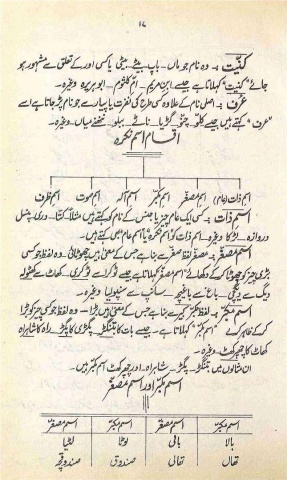 ۱۷
کنیت :۔ وہ نام جو ماں ۔ باپ ۔ بیٹے ۔ بیٹی یا کسی اور کے تعلق سے مشہور ہو
جائے "کنیت" کہلاتا ہے جیسے ابن مریم ۔ ام کلثوم ۔ ابوہریرہ وغیرہ۔
عرف :۔ اصل نام کے علاوہ کسی طرح کی نفرت یا پیار سے جو نام پڑ جاتا ہے اسے
"عرف" کہتے ہیں جیسے کلو ۔ چنو ۔ گڑیا ۔ ناٹے ۔ ببلو ۔ ننھے میاں ۔ وغیرہ۔
اقسام اسم نکرہ
اسم ذات (عام) اسم مصغر اسم مکبر اسم آلہ اسم صوت اسم ظرف
اسم ذات :۔ کسی ایک عام چیز یا جنس کے نام کو کہتے ہیں مثلاً کتا ۔ دری ۔ پنسل
دروازہ ۔ لڑکا وغیرہ ۔ اسم ذات کو اسم نکرہ یا اسم عام بھی کہتے ہیں۔
اسم مصغر :۔ مصغر لفظ صغر سے بنا ہے جس کے معنی ہیں چھوٹائی ۔ وہ لفظ جو کسی
بڑی چیز کو چھوٹا کر کے دکھائے "اسم مصغر" کہلاتا ہے جیسے ٹوکرا سے ٹوکری ۔ کھاٹ سے کھٹولہ
دیگ سے دیگچی ۔ باغ سے باغیچہ ۔ سانپ سے سنپولیا وغیرہ۔
اسم مکبر :۔ لفظ مکبر کبر سے بنا ہے جس کے معنی ہیں بڑا ۔ وہ لفظ جو کسی چیز کو بڑا
کر کے ظاہر کرے "اسم مکبر" کہلاتا ہے ۔ جیسے بات کا بتنگڑ ۔ پگڑی کا پگڑ ۔ راہ کا شاہراہ
کھاٹ کا چھپر کھٹ وغیرہ۔
ان مثالوں میں بتنگڑ ۔ پگڑ ۔ شاہراہ ۔ اور چھپر کھٹ اسم مکبر ہیں۔
اسم مکبر اور اسم مصغر
اسم مکبر اسم مصغر اسم مکبر اسم مصغر
بالا بالی لوٹا لٹیا
تھال تھالی صندوق صندوقچہ